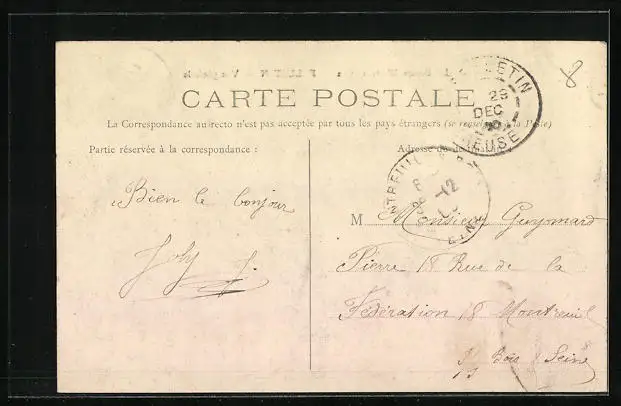 CARTE POSTALE
La Correspondance au recto n'est pas acceptée par tous les pays étrangers (se renseigner à la Poste)
Partie réservée à la correspondance :
Adresse du destinataire
Bien le bonjour
Joly J.
M Monsieur Guyomard
Pierre 18 Rue de la
Fédération 18 Montreuil
s/s Bois Seine
FELLETIN
26
DEC
CREUSE
6
-12
8